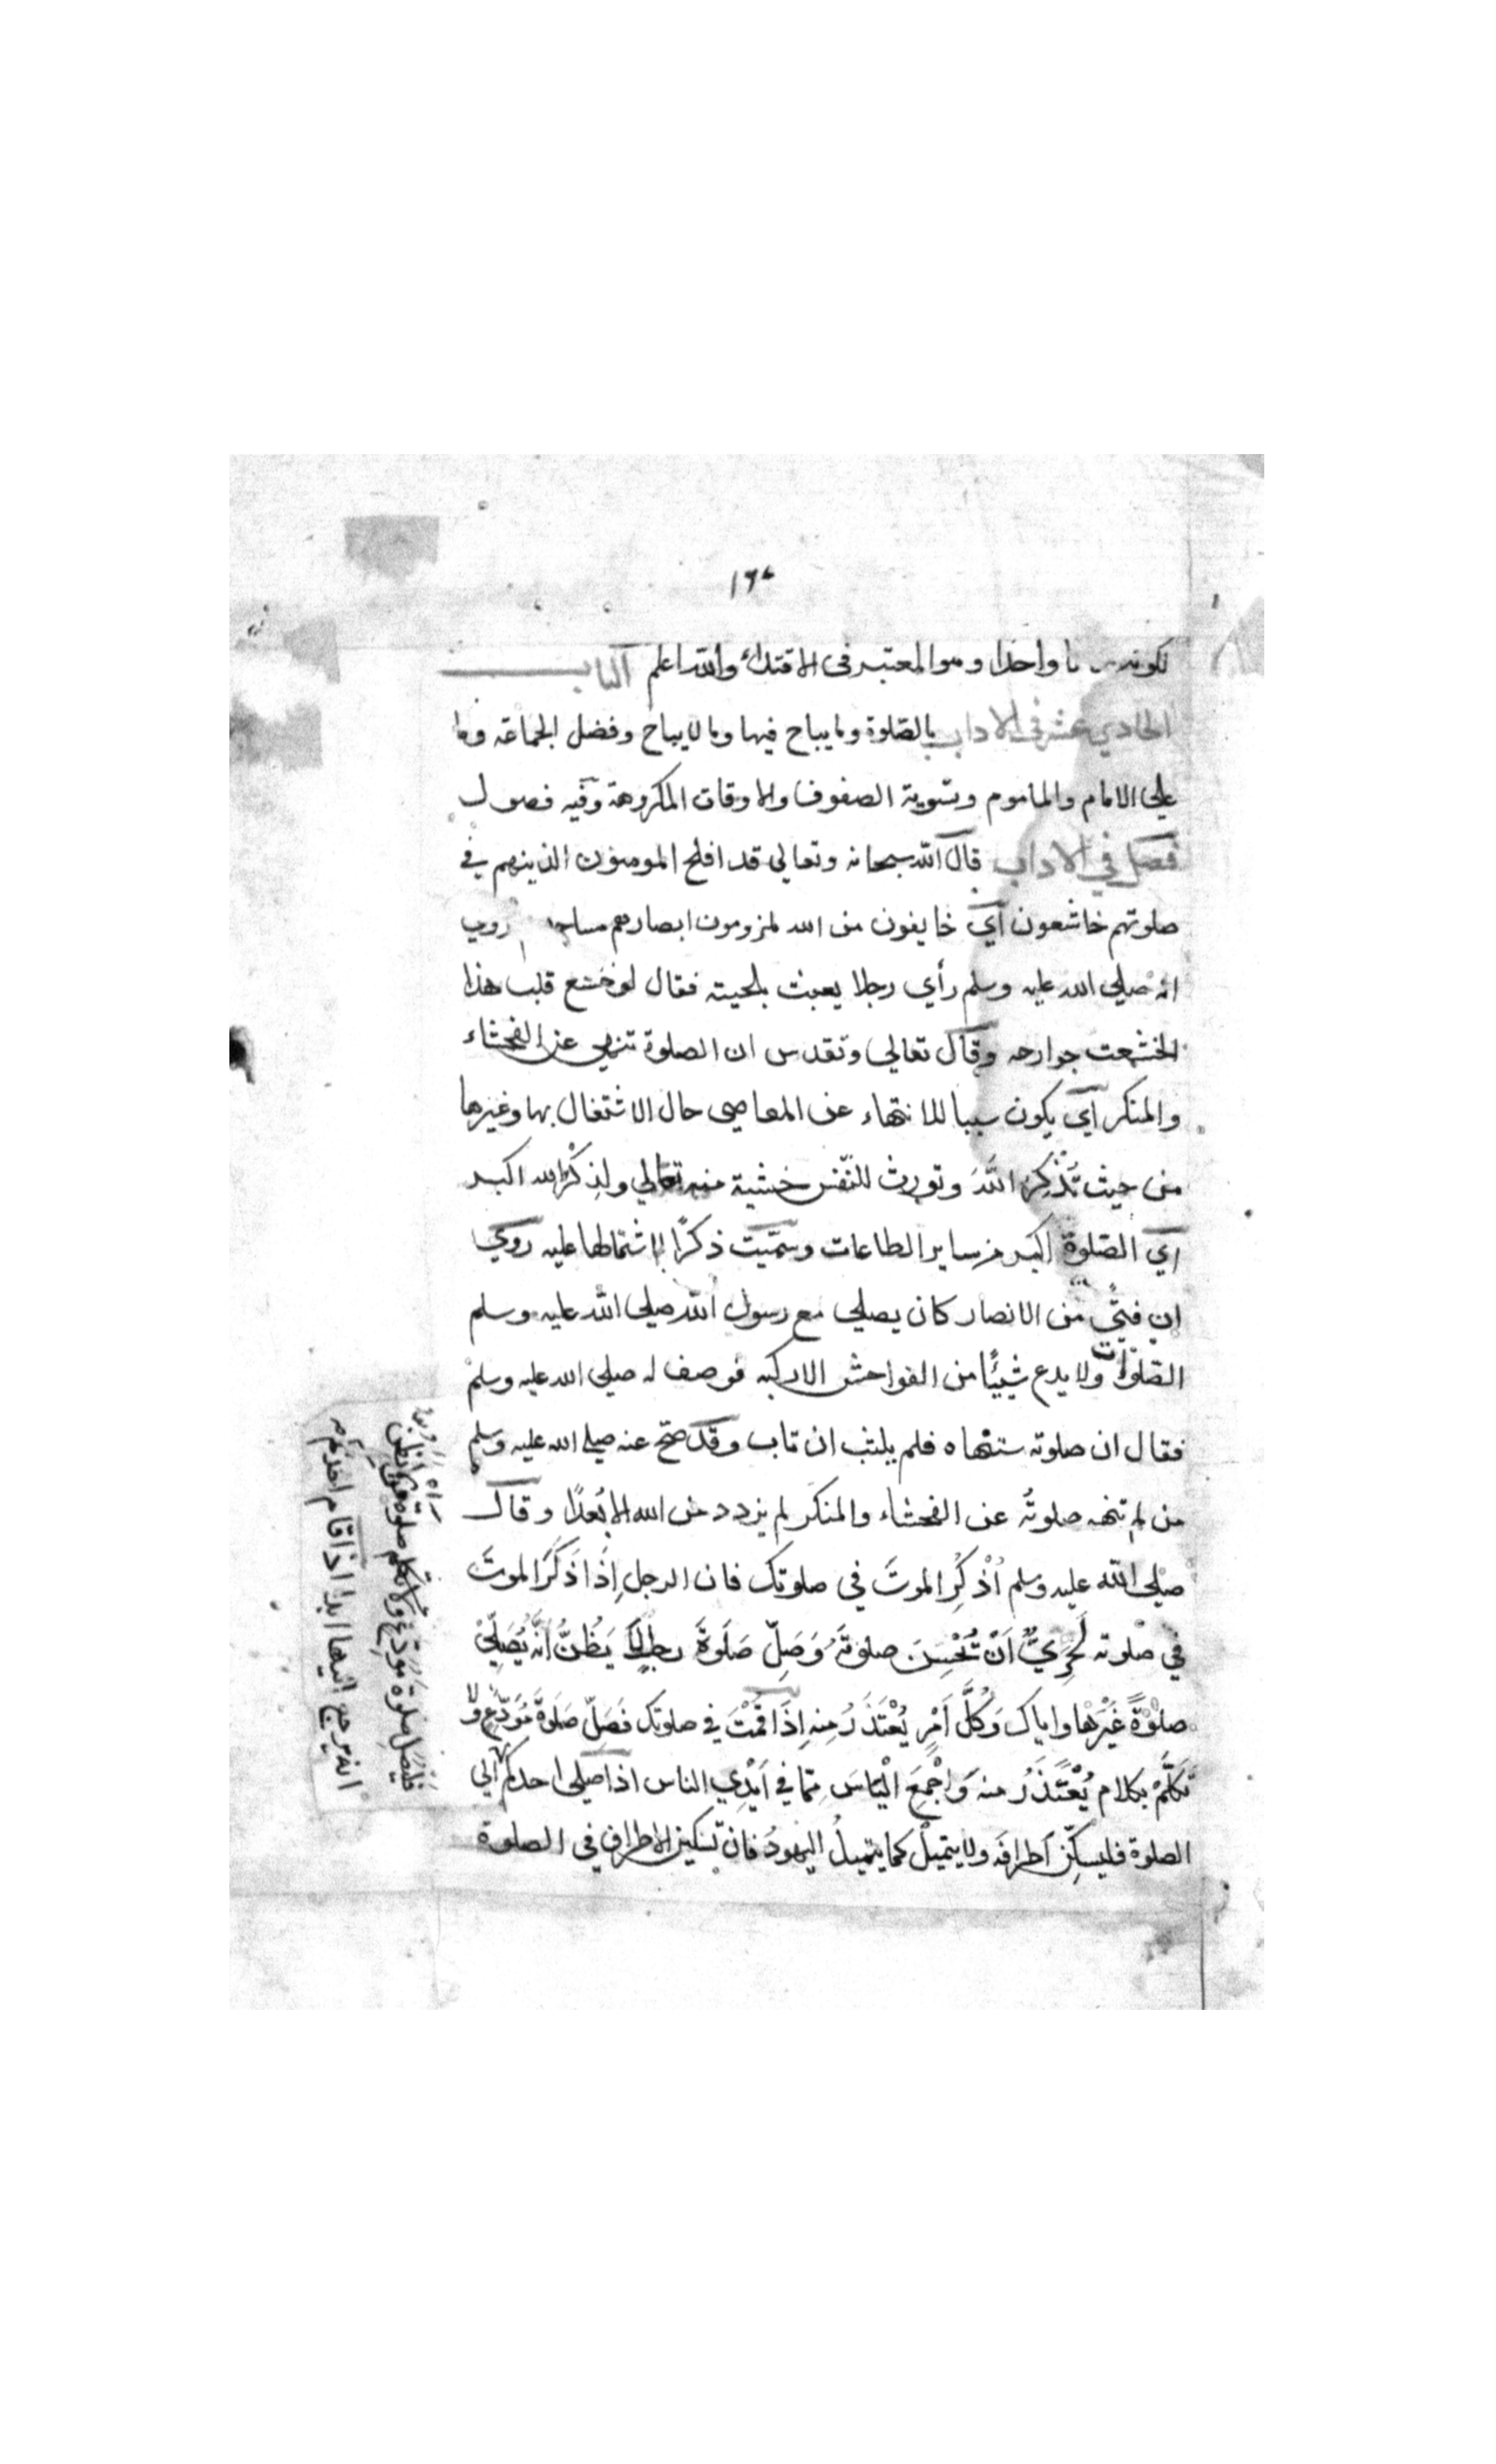 ١٦٨
واحدا وهو المعتبر في الاقتداء والله اعلم الباب
الحادي عشر في الاداب بالصلوة وما يباح فيها وما لا يباح وفضل الجماعة وما
علي الامام والماموم وتسوية الصفوف والاوقات المكروهة وفيه فصول
فصل في الاداب قال الله سبحانه وتعالي قد افلح المومنون الذينهم في
صلوتهم خاشعون اي خايفون من الله ملزومون ابصارهم روي
انه صلي الله عليه وسلم رأي رجلا يعبث بلحيته فقال لو خشع قلب هذا
لخشعت جوارحه وقال تعالي وتقدس ان الصلوة تنهي عن الفحشاء
والمنكر اي يكون سببا للانتهاء عن المعاصي حال الاشتغال بها وغيرها
من حيث تُذْكِرُ اللهَ وتورث للنّفس خشية منه تعالي ولذِكْرُ الله اكبر
اي الصّلوة اكبر من ساير الطاعات وسمّيت ذكرًا لاشتمالها عليه روي
ان فتيً من الانصار كان يصلي مع رسول الله صلي الله عليه وسلم
الصّلوات ولا يدع شيئًا من الفواحش الا ركبه فوصف له صلي الله عليه وسلم
فقال ان صلوته ستنهاه فلم يلبث ان تاب وقد صح عنه صلي الله عليه وسلم
من لم تنهه صلوتُه عن الفحشاء والمنكر لم يزدد من الله الا بُعدًا وقال
صلي الله عليه وسلم اُذْكُرِ الموتَ في صلوتك فان الرجل اِذَا ذَكَرَ الموتَ
في صلوته لَحَرِيٌّ اَنْ تُحْسِنَ صلوتَهُ وَصَلِّ صَلَوةَ رجلٍ لَا يَظُنُّ اَنَّهُ يُصَلِّيْ
صلوْةً غَيْرَها واياك وَكُلَّ اَمْرٍ يُعْتَذَرُ مِنه اِذَا قُمْتَ في صلوتك فَصَلِّ صَلَوةَ مُوَدِّعٍ وَلَا
تَكَلَّمْ بكلام يُعْتَذَرُ منه وَاجْمِعَ الْيَاسَ مِمّا في اَيْدِي الناس اذا صلي احدكم الي
الصلوة فليسكّن اطرافَه ولا يتميلُ كما يتميلُ اليهودُ فان تسكين الاطراف في الصلوة
فليصل صلوة مودع صلوة من
انه يرجع اليها ابدا اذا قام احدكم